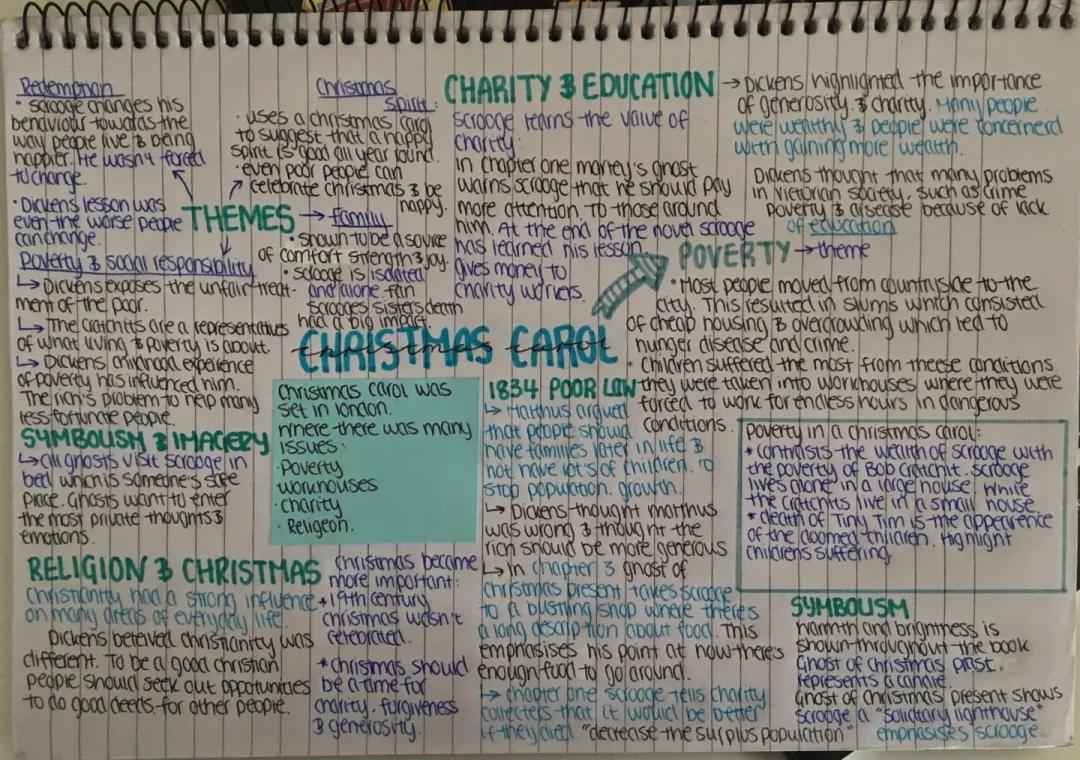 Redemption
• scrooge changes his
behaviour towards the
way people live & being
happier. He wasn't forced
to change.
• Dickens lesson was
even the worse people
can change.
THEMES
Poverty & social responsibility
↳ Dickens exposes the unfair treat-
ment of the poor.
↳ The cratchits are a representatives
of what living & poverty is about.
↳ Dickens childhood experience
of poverty has influenced him.
The rich's problem to help many
less fortunate people.
Christmas
Spirit:
• uses a christmas carol
to suggest that a happy
spirit is good all year round.
• even poor people can
celebrate christmas & be
happy.
→ family
• shown to be a source
of comfort strength & joy.
• scrooge is isolated
and alone. fan
scrooges sisters death
had a big impact.
CHARITY & EDUCATION
scrooge learns the value of
charity.
in chapter one marley's ghost
warns scrooge that he should pay
more attention to those around
him. At the end of the novel scrooge
has learned his lesson
gives money to
charity workers.
→ Dickens highlighted the importance
of generosity & charity. Many people
were wealthy & people were concerned
with gaining more wealth.
Dickens thought that many problems
in victorian society, such as crime
poverty & disease because of lack
of education
POVERTY → theme
• Most people moved from countryside to the
city. This resulted in slums which consisted
of cheap housing & overcrowding which led to
hunger disease and crime.
• Children suffered the most from theese conditions
they were taken into workhouses where they were
forced to work for endless hours in dangerous
conditions.
CHRISTMAS CAROL
christmas carol
Christmas carol was
set in london.
where there was many
issues:
• Poverty
workhouses
• charity
• Religeon.
1834 POOR LAW
↳ Malthus argued
that people should
have families later in life &
not have lot's of children. To
stop population growth.
↳ Dickens thought malthus
was wrong & thought the
rich should be more generous
↳ In chapter 3 ghost of
christmas present takes scrooge
to a bustling shop where there's
a long description about food. This
emphasises his point at how there's
enough food to go around.
↳ chapter one scrooge tells charity
collecters that it would be better
if they died. "decrease the surplus population"
Poverty in a christmas carol:
* contrasts the wealth of scrooge with
the poverty of Bob cratchit. scrooge
lives alone in a large house while
the cratchits live in a small house
* death of Tiny Tim is the appearence
of the doomed children. Highlight
childrens suffering.
SYMBOLISM & IMAGERY
↳ all ghosts visit scrooge in
bed which is someone's safe
place. Ghosts want to enter
the most private thoughts &
emotions.
RELIGION & CHRISTMAS
Christianity had a strong influence
on many areas of everyday life.
Dickens beleived christianity was
different. To be a good christian
people should seek out oppotunities
to do good deeds for other people.
christmas became
more important:
* 19th century
christmas wasn't
celebrated.
* christmas should
be a time for
charity, forgiveness
& generosity.
SYMBOLISM
warmth and brightness is
shown throughout the book
Ghost of christmas past.
represents a candle.
Ghost of christmas present shows
scrooge a "solidtary lighthouse"
emphasises scrooge.